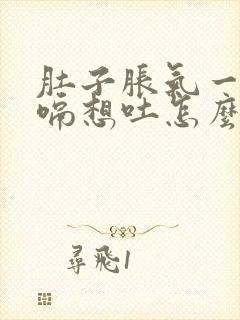 肚子脹氣一
嗝想吐怎麼
尋飛1